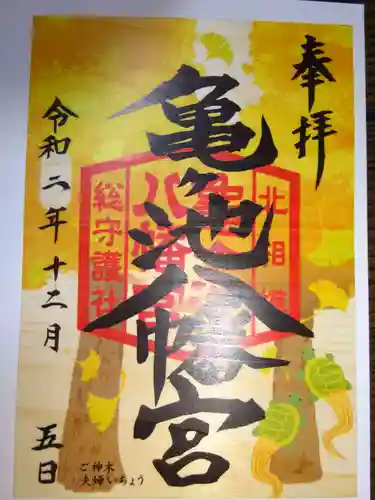 奉拝
亀ヶ池八幡宮
北相模
総守護社
令和二年十二月五日
ご神木
夫婦いちょう